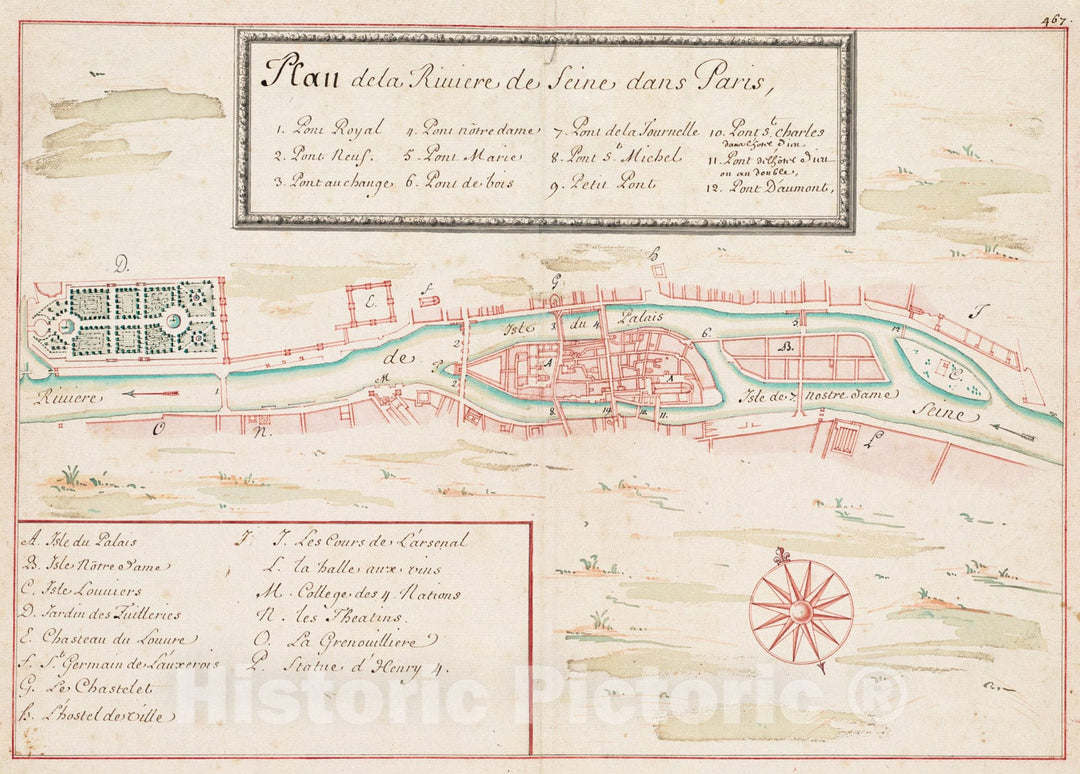 467.
Plan dela Riviere de Seine dans Paris,
1. Pont Royal
2. Pont Neuf.
3. Pont au change
4. Pont nôtre dame
5. Pont Marie
6. Pont de bois
7. Pont dela Tournelle
8. Pont St. Michel
9. Petit Pont
10. Pont St. charles
dans l'hôtel d'ieu
11. Pont de l'hôtel d'ieu
ou au double,
12. Pont D'aumont,
D.
f
E
G
h
J
Isle 3 du 4 Palais
5
12
6
2
de
P
2
A
A
B
C
M
Riviere
1
8
9
10
11
Isle de 7 Nostre dame
Seine
O
N.
L
A. Isle du Palais
B. Isle Nôtre dame
C. Isle Louviers
D. Jardin des Tuilleries
E. Chasteau du Louure
f. St. Germain de L'auxerois
G. Le Chastelet
h. L'hostel de ville
J J. Les Cours de L'arsenal
L. la halle aux vins
M. College des 4. Nations
N. les Theatins.
O. La Grenouilliere
P. Statue d'Henry 4.
Historic Pictoric ®